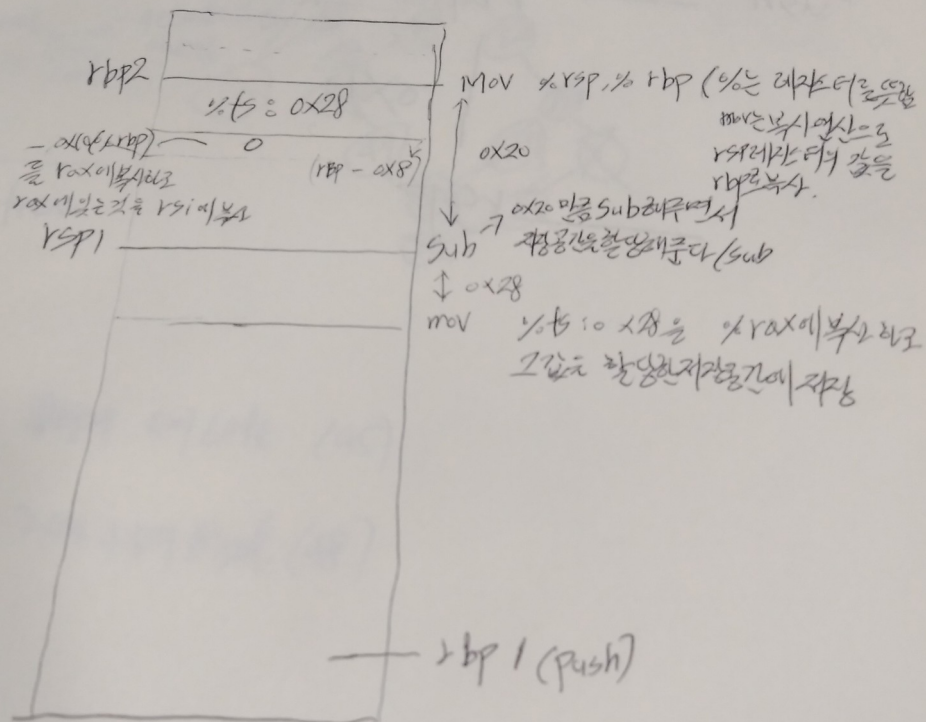 rbp2
%fs : 0x28
0
(rbp - 0x8)
를 rax에복사하고
rax에있는것을 rsi에복사
rsp1
mov %rsp, % rbp (%는 레지스터를 뜻함
mov는 복사연산으로
rsp레지스터의 값을
rbp로복사.
0x20
sub → 0x20만큼 sub해주면서
저장공간을할당해준다/sub
↕ 0x28
mov %fs : 0x28을 %rax에복사하고
그값을 할당한저장공간에 저장
rbp 1 (push)